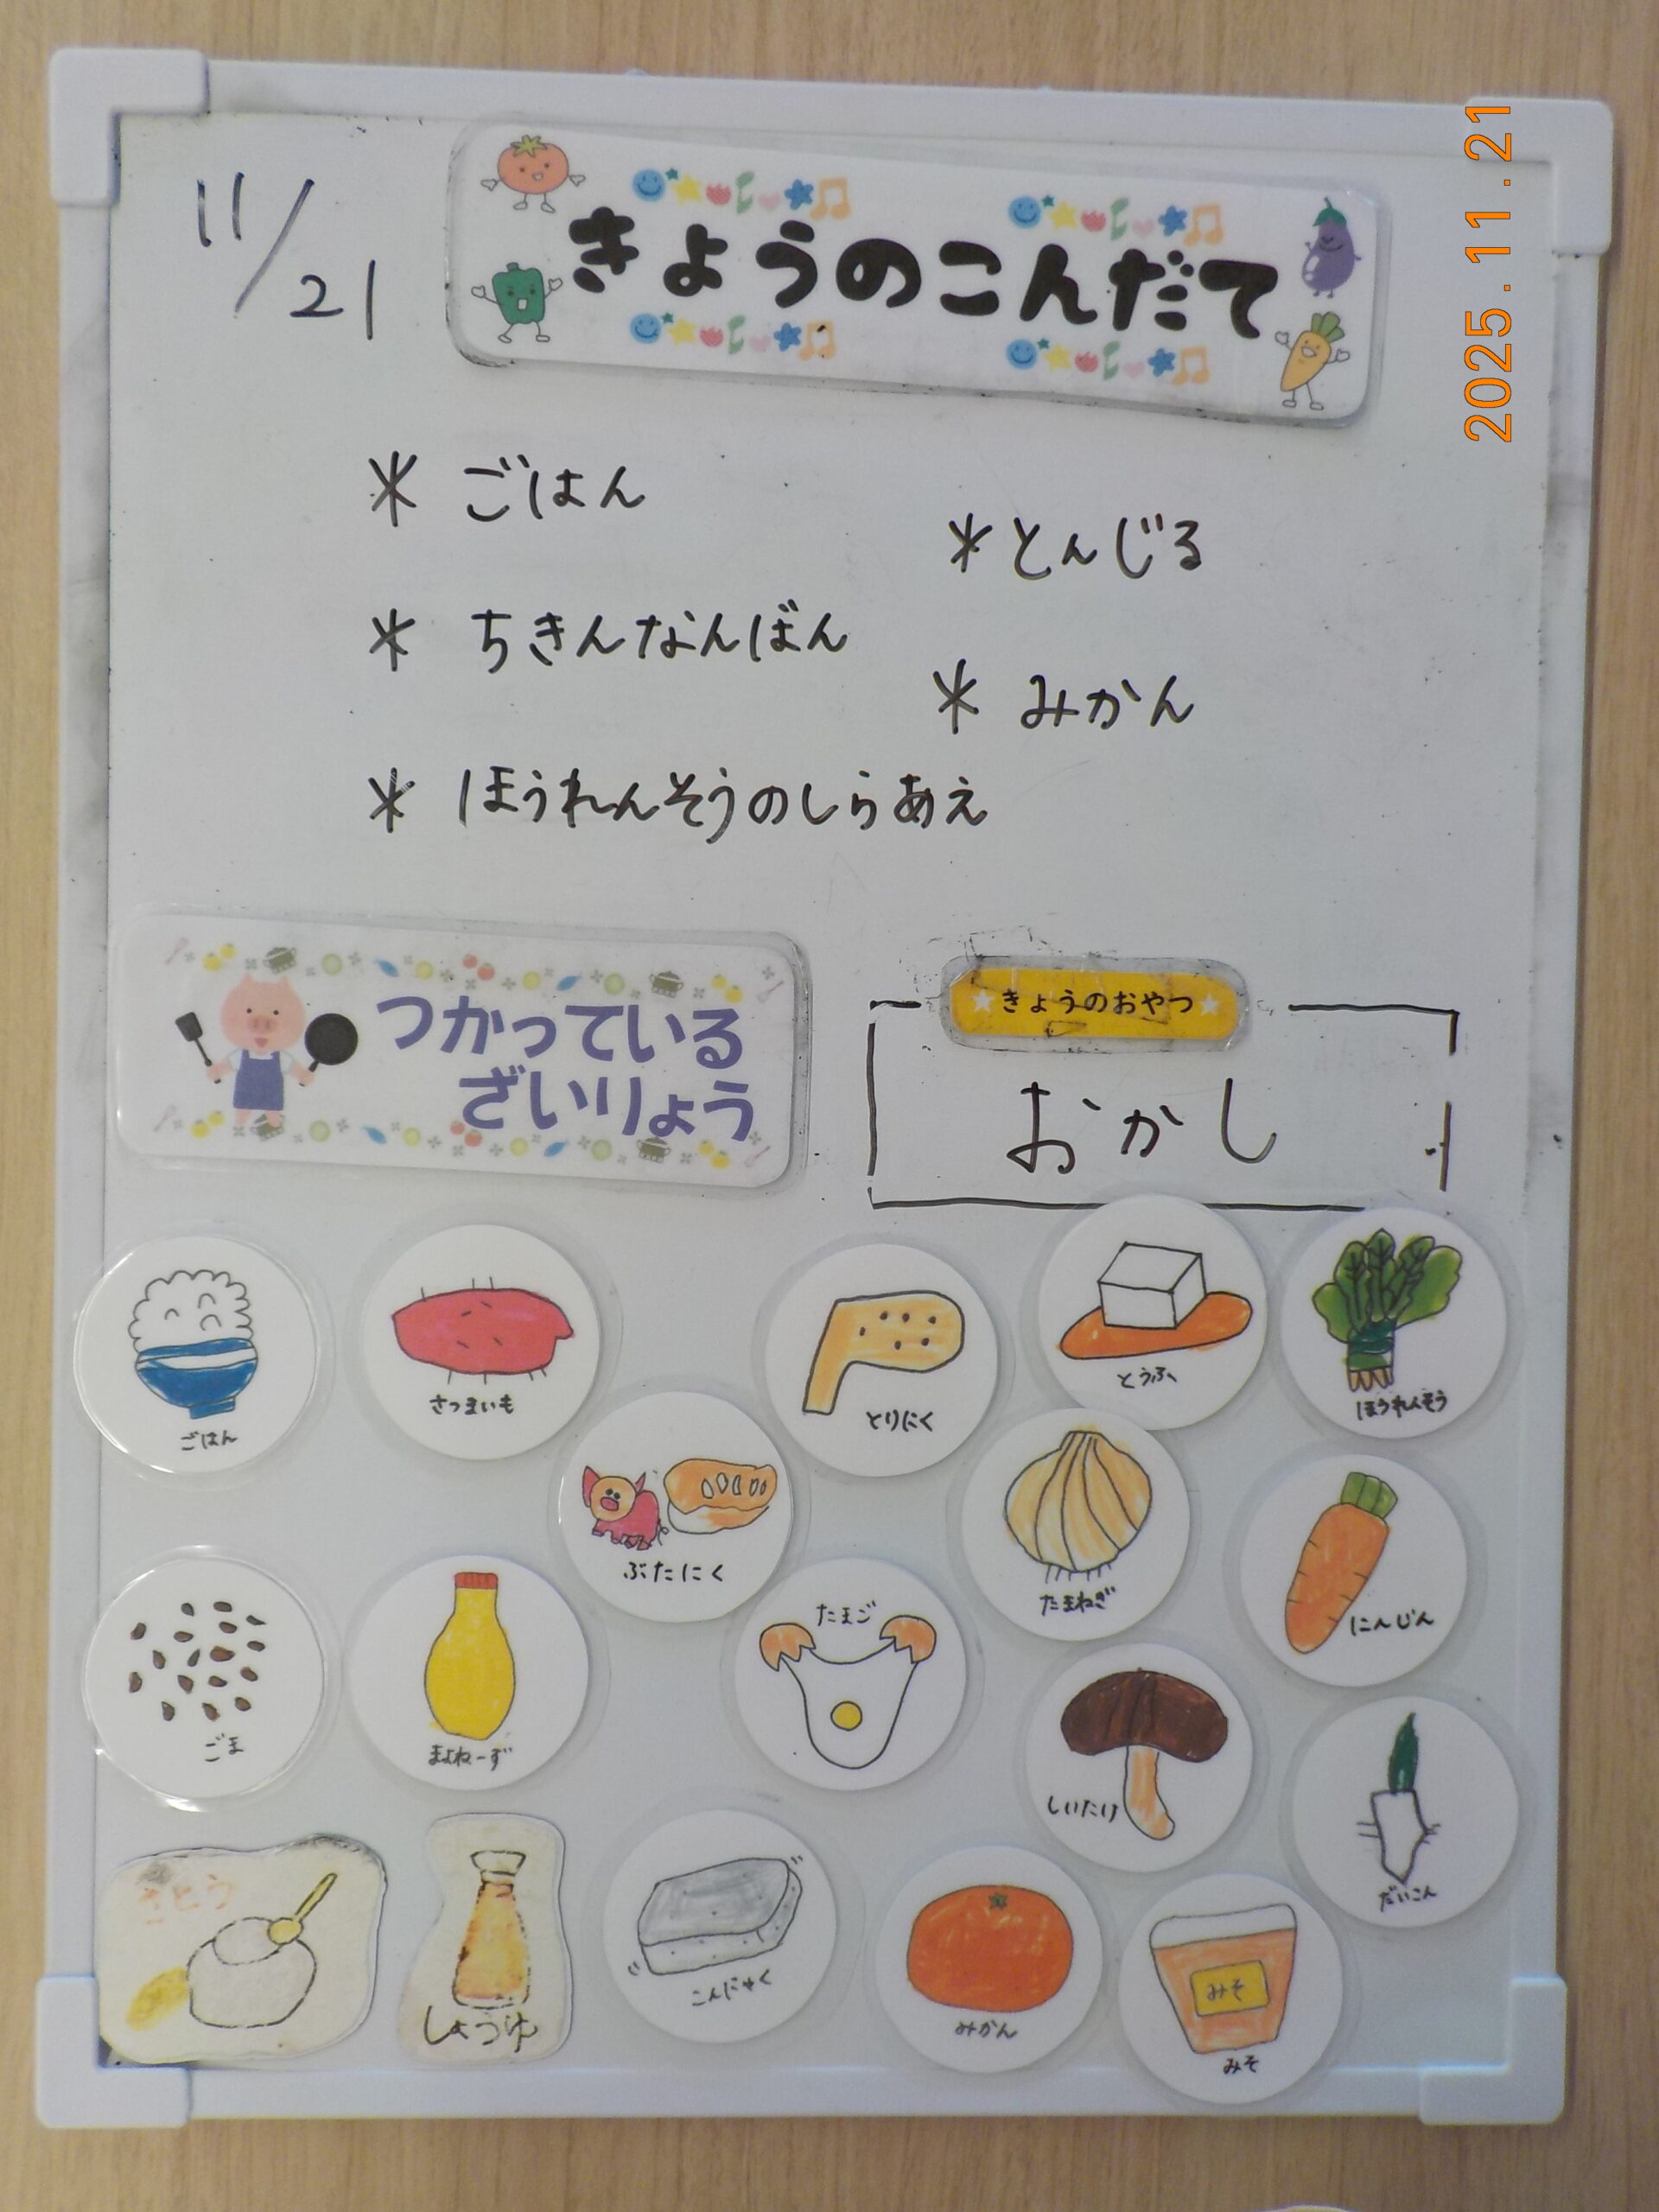 11/21
きょうのこんだて
2025.11.21
* ごはん
* とんじる
* ちきんなんばん
* みかん
* ほうれんそうのしらあえ
つかっている
ざいりょう
きょうのおやつ
おかし
ごはん
さつまいも
とりにく
とうふ
ほうれんそう
ぶたにく
たまねぎ
にんじん
ごま
まよねーず
たまご
しいたけ
だいこん
さとう
しょうゆ
こんにゃく
みかん
みそ
みそ